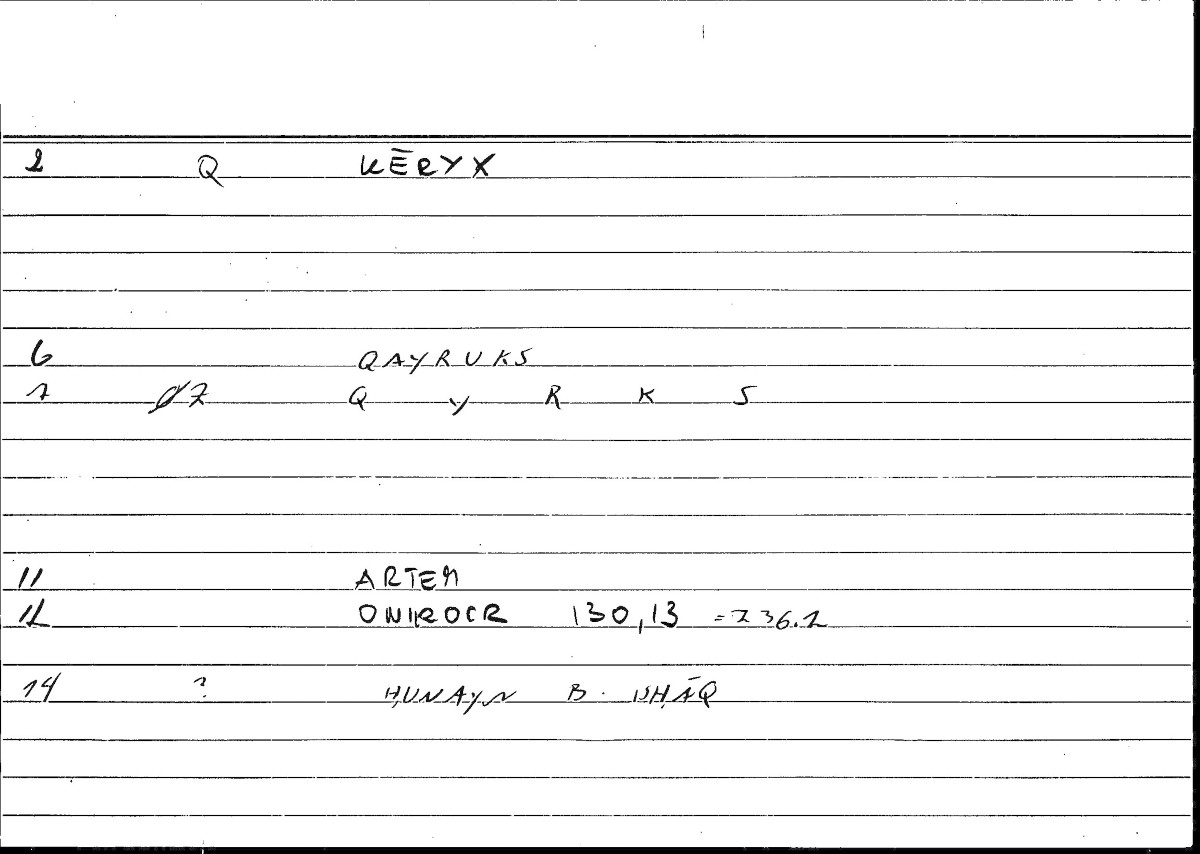 2 Q KĒRYX
6 QAYRUKS
7 07 Q Y R K S
11 ARTEM
12 ONIROCR 130,13 = 236.2
14 ? ḤUNAYN B. ISḤĀQ